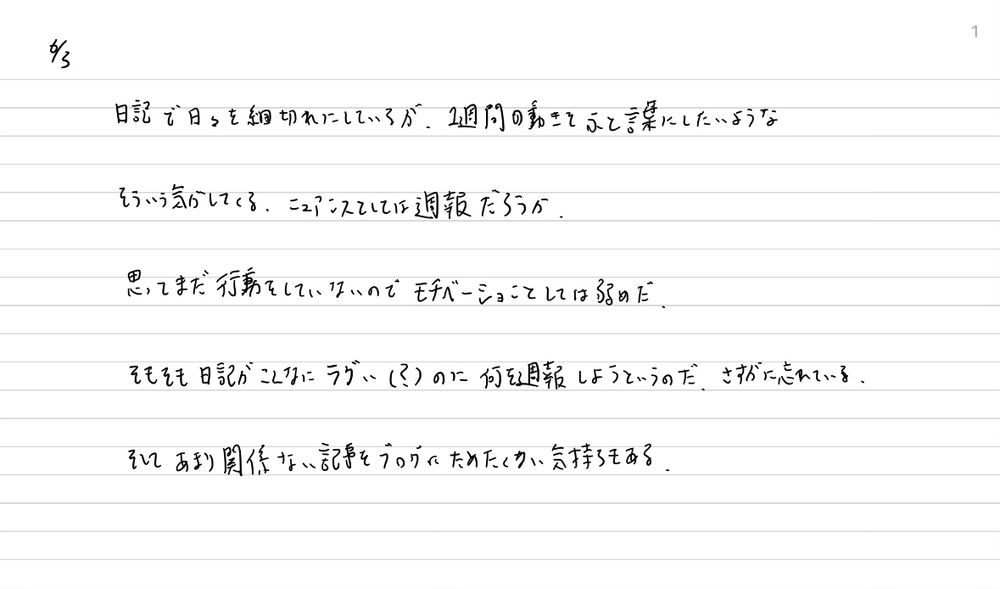 1
6/3
日記で日々を細切れにしているが、1週間の動きをふと言葉にしたいような
そういう気がしてくる、ニュアンスとしては週報だろうか、
思ってまだ行動をしていないのでモチベーションとしては弱めだ、
そもそも日記がこんなにラグい(?)のに何を週報しようというのだ、さすがに忘れている、
そしてあまり関係ない記事をブログにためたくない気持ちもある、